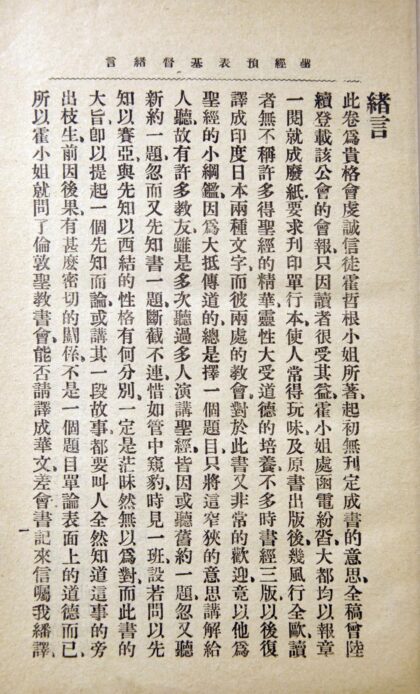 舊經預表基督緒言
緒言
此卷爲貴格會虔誠信徒霍哲根小姐所著、起初無刊定成書的意思、全稿曾陸
續登載該公會的會報、只因讀者很受其益、霍小姐處函電紛沓、大都均以報章
一閱就成廢紙、要求刊印單行本、使人常得玩味、及原書出版後、幾風行全歐、讀
者無不稱許多得聖經的精華、靈性大受道德的培養、不多時書經三版以後、復
譯成印度日本兩種文字、而彼兩處的教會、對於此書又非常的歡迎、竟以他爲
聖經的小綱鑑、因爲大抵傳道的、總是擇一個題目、只將這窄狹的意思講解給
人聽、故有許多教友、雖是多次聽過多人演講聖經、皆因或聽舊約一題、忽又聽
新約一題、忽而又先知書一題、斷截不連、惜如管中窺豹、時見一班、設若問以先
知以賽亞、與先知以西結的性格有何分別、一定是茫昧然無以爲對、而此書的
大旨、卽以提起一個先知而論、或講其一段故事、都要叫人全然知道這事的旁
出枝生、前因後果、有甚麽密切的關係、不是一個題目單論表面上的道德而已、
所以霍小姐就問了倫敦聖教書會、能否請譯成華文、差會書記來信囑我繙譯、
一